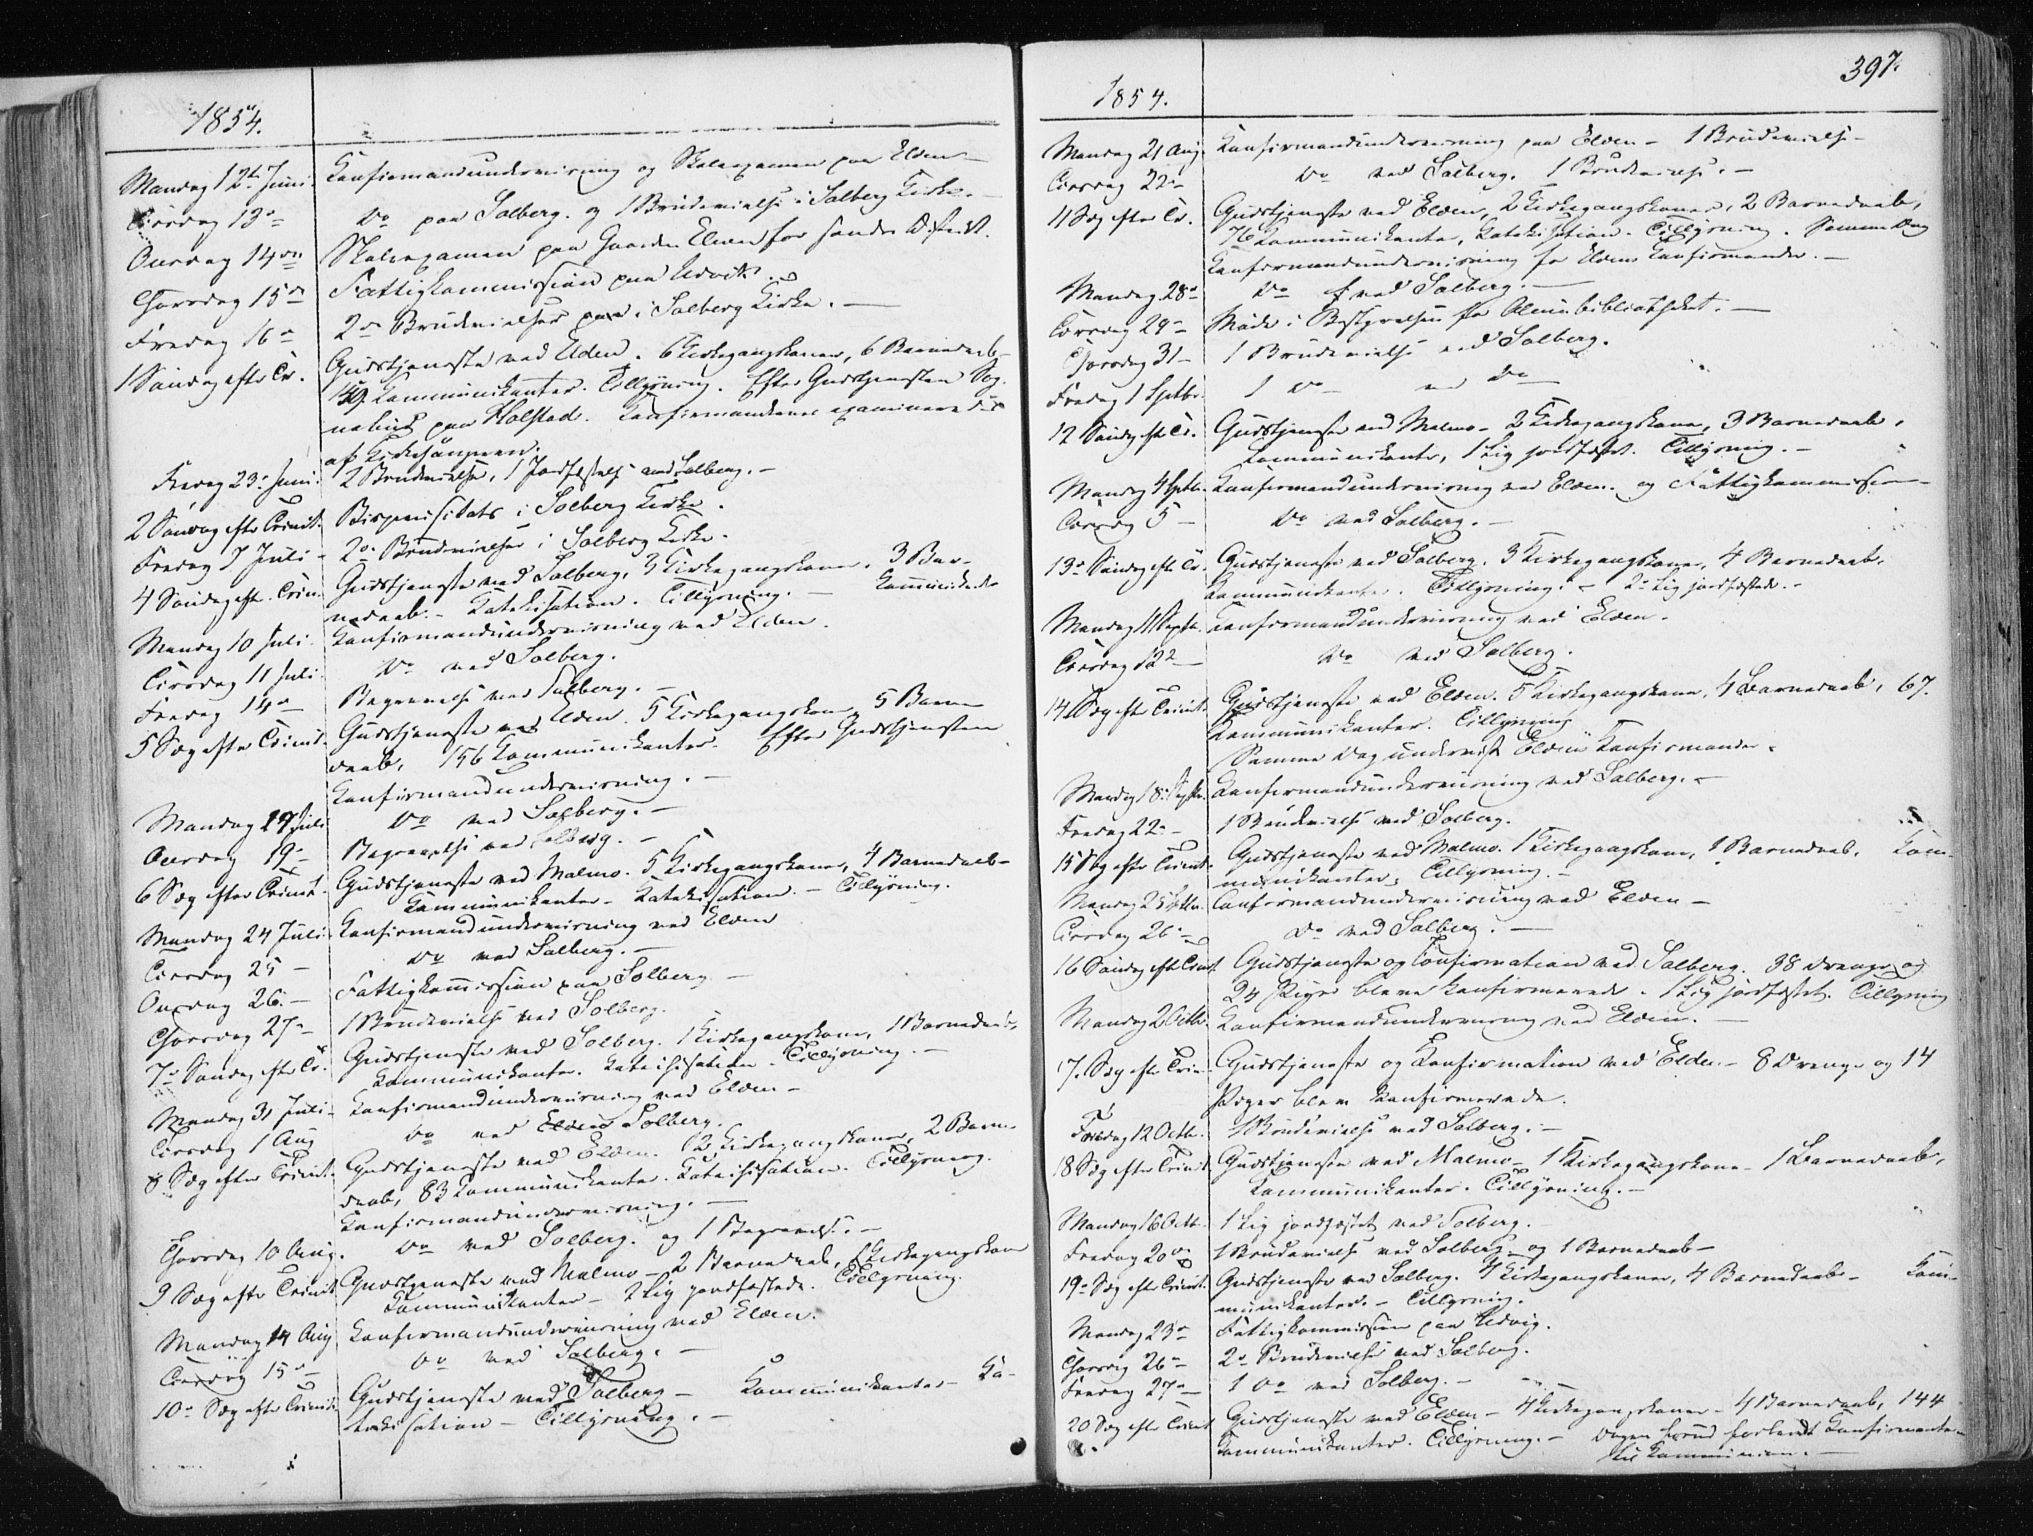 1854.
Mandag 12te Juni. Konfirmandundervisning og Skoleexamen paa Elden
Tirsdag 13de Do paa Solberg. og 1 Brudevielse i Solberg Kirke.
Onsdag 14de Skoleexamen paa Gaarden Elden for søndre Distrikt.
Thorsdag 15de Fattigkommission paa Udvik.
Fredag 16de 2de Brudevielser i Solberg Kirke.
1 Søndag efter Tr. Gudstjeneste ved Elden. 6 Kirkegangskoner, 6 Barnedaab
Kommunikanter. Tillysning. Efter Gudstjenesten Sog-
nebud paa Holstad. Konfirmanderne examinerede
af Kirkesangeren.
Fredag 23de Juni. 2 Brudevielser, 1 Jordfæstelse ved Solberg.
2 Søndag efter Trinit. Bispevisitats i Solberg Kirke.
Fredag 7 Juli 2de Brudevielser i Solberg Kirke.
4 Søndag eft. Trin. Gudstjeneste ved Solberg, 3 Kirkegangskoner, 3 Bar-
nedaab. Katekisation. Tillysning. Kommunikanter
Mandag 10 Juli. Konfirmandundervisning ved Elden.
Tirsdag 11 Juli. Do ved Solberg.
Fredag 14de Begravelse ved Solberg.
5 Søg efter Trinit. Gudstjeneste ved Elden. 5 Kirkegangskoner, 5 Barne-
daab, 156 Kommunikanter. Efter Gudstjenesten
Konfirmandundervisning.
Mandag 17 Juli Do ved Solberg.
Onsdag 19de Begravelse ved Solberg.
6 Søg efter Trinit. Gudstjeneste ved Malmo. 5 Kirkegangskoner, 4 Barnedaab
Kommunikanter. Katekisation. Tillysning.
Mandag 24 Juli. Konfirmandundervisning ved Elden
Tirsdag 25 Do ved Solberg.
Onsdag 26. Fattigkommission paa Solberg
Thorsdag 27de 1 Brudevielse ved Solberg.
7de Søndag efter Tr. Gudstjeneste ved Solberg. 1 Kirkegangskone, 1 Barnedaab,
Kommunikanter. Katechisation. Tillysning.
Mandag 31 Juli Konfirmandundervisning ved Elden
Tirsdag 1 Aug Do ved Solberg.
8 Søg efter Trinit. Gudstjeneste ved Elden. 2 Kirkegangskoner, 2 Barne-
daab, 83 Kommunikanter. Katechisation. Tillysning.
Konfirmandundervisning.
Thorsdag 10 Aug. Do ved Solberg. og 1 Begravelse.
9 Søg efter Trinit. Gudstjeneste ved Malmo 2 Barnedaab, Kirkegangskone
Kommunikanter 2 Lig jordfæstede. Tillysning.
Mandag 14 Aug Konfirmandundervisning ved Elden.
Tirsdag 15de Do ved Solberg.
10de Søg efter Trinit. Gudstjeneste ved Solberg Kommunikanter Ka-
tekisation Tillysning.
397.
1854.
Mandag 21 Aug. Konfirmandundervisning paa Elden 1 Brudevielse
Tirsdag 22de Do ved Solberg. 1 Brudevielse.
Søg efter Tr. Gudstjeneste ved Elden, 2 Kirkegangskoner, 2 Barnedaab,
76 Kommunikanter, Katekisation. Tillysning. Samme Dag
Konfirmandundervisning for Eldens Konfirmander.
Mandag 28de Do ved Solberg.
Tirsdag 29 Møde i Bestyrelsen for Almuebibliotheket.
Thorsdag 31 1 Brudevielse ved Solberg.
Fredag 1 Septbr. 1 Do ved Do
12 Søndag eft. Tr. Gudstjeneste ved Malmo 2 Kirkegangskoner, 3 Barnedaab,
Kommunikanter, 1 Lig jordfæstet. Tillysning.
Mandag 4 Septbr. Konfirmandundervisning ved Elden. og Fattigkommission
Tirsdag 5 Do ved Solberg.
13de Søndag eft. Tr. Gudstjeneste ved Solberg. 3 Kirkegangskoner, 4 Barnedaab.
Kommunikanter. Tillysning. 2de Lig jordfæstede.
Mandag 11 Septbr. Konfirmandundervisning ved Elden.
Tirsdag 12 Do ved Solberg.
14 Søg efter Trinit. Gudstjeneste ved Elden. 5 Kirkegangskoner, 4 Barnedaab, 67.
Kommunikanter. Tillysning
Samme Dag underviist Eldens Konfirmander.
Mandag 18. Septbr. Konfirmandundervisning ved Solberg.
Fredag 22. 1 Brudevielse ved Solberg.
15 Søg efter Trinit. Gudstjeneste ved Malmo. 1 Kirkegangskone, 1 Barnedaab. Kom-
munikanter, Tillysning.
Mandag 25 Septbr. Confirmandundervisning ved Elden
Tirsdag 26 Do ved Solberg.
16 Søndag eft. Trinit. Gudstjeneste og Confirmation ved Solberg. 38 Drenge og
24 Piger bleve konfirmerede. 1 Lig jordfæstet. Tillysning
Mandag 2 Octbr. Konfirmandundervisning ved Elden.
17. Søg efter Trin. Gudstjeneste og Konfirmation ved Elden. 8 Drenge og 14
Piger bleve konfirmerede.
12 Octbr. 1 Brudevielse ved Solberg.
18 Søg efter Trinit. Gudstjeneste ved Malmo 1 Kirkegangskone 1 Barnedaab,
Kommunikanter. Tillysning.
Mandag 16 Octbr. 1 Lig jordfæstet ved Solberg.
Fredag 20de 1 Brudevielse ved Solberg og 1 Barnedaab
19de Søg efter Trinit. Gudstjeneste ved Solberg. 4 Kirkegangskoner, 4 Barnedaab Kom-
munikanter. Tillysning.
Mandag 23de Fattigkommission paa Udvig.
Thorsdag 26de 2de Brudevielser ved Solberg.
Fredag 27de 1 Do ved Solberg.
20 Søg efter Trinit Gudstjeneste ved Elden 4 Kirkegangskoner 4 Barnedaab, 144
Kommunikanter. Tillysning. Dagen forud Konfirmanter
til Kommunion.